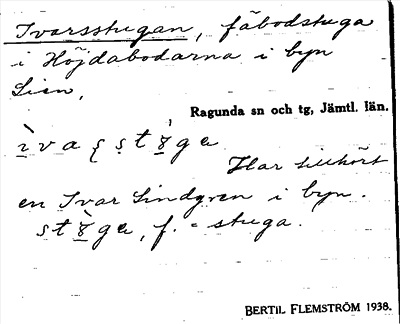 Ivarsstugan, fäbodstuga
i Höjdabodarna i byn
Lien,
Ragunda sn och tg, Jämtl. län.
Har tillhört
en Ivar Lindgren i byn.
f. = stuga.
BERTIL FLEMSTRÖM 1938.